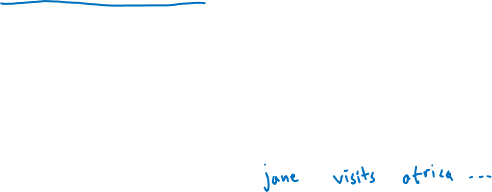 jane visits africa ...